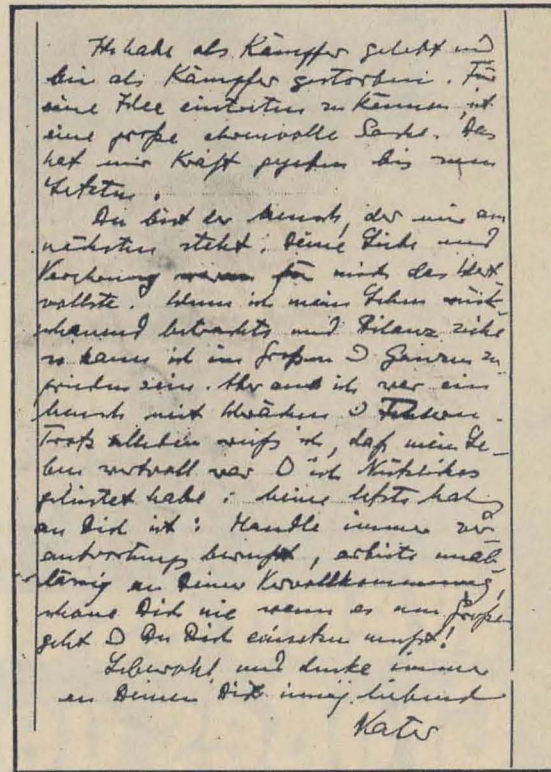 Ich habe als Kämpfer gelebt und
bin als Kämpfer gestorben. Für
eine Idee eintreten zu können, ist
eine große ehrenvolle Sache. Das
hat mir Kraft gegeben bis zum
Letzten.
Du bist der Mensch, der mir am
nächsten steht. Deine Liebe und
Verehrung waren für mich das Wert-
vollste. Wenn ich mein Leben rück-
schauend betrachte und Bilanz ziehe
so kann ich im Großen & Ganzen zu
frieden sein. Aber auch ich war ein
Mensch mit Schwächen & Fehlern.
Trotz alledem weiß ich, daß mein Le-
ben wertvoll war & ich Nützliches
geleistet habe. Meine letzte
an Dich ist: Handle immer ver-
antwortungsbewußt, arbeite unab-
lässig an Deiner Vervollkommnung,
schone Dich nie wenn es um Großes
geht & Du Dich einsetzen mußt!
Lebewohl und denke immer
an Deinen Dich innig liebend
Vater